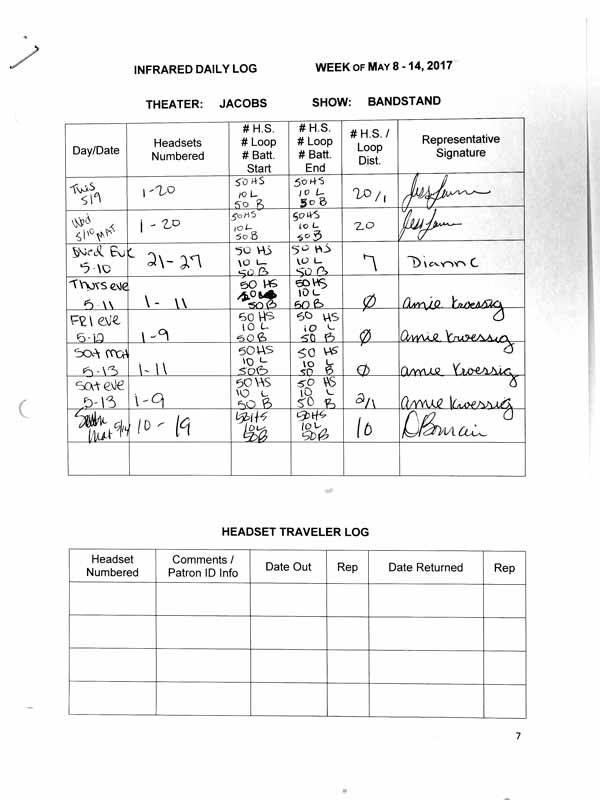 INFRARED DAILY LOG WEEK OF MAY 8 - 14, 2017
THEATER: JACOBS SHOW: BANDSTAND
Day/Date Headsets Numbered # H.S. # Loop # Batt. Start # H.S. # Loop # Batt. End # H.S. / Loop Dist. Representative Signature
Tues 5/9 1-20 50 HS 10 L 50 B 50HS 10 L 50 B 20/1
Wed 5/10 MAT 1-20 50 HS 10L 50 B 50HS 10L 50 B 20
Wed Eve 5-10 21-27 50 HS 10 L 50 B 50 HS 10 L 50 B 7 Dianne
Thurs eve 5-11 1-11 50 HS 50 B 50HS 10 L 50 B Ø amie Kroessig
FRI eve 5-12 1-9 50 HS 10 L 50B 50 HS 10 L 50 B Ø amie Kroessig
Sat mat 5-13 1-11 50HS 10 L 50B 50 HS 10 L 50 B Ø amie Kroessig
Sat eve 5-13 1-9 50 HS 10 L 50 B 50 HS 10 L 50 B 2/1 amie Kroessig
Mat 5/14 10-19 50HS 10L 50B 50HS 10L 50B 10
HEADSET TRAVELER LOG
Headset Numbered Comments / Patron ID Info Date Out Rep Date Returned Rep
7